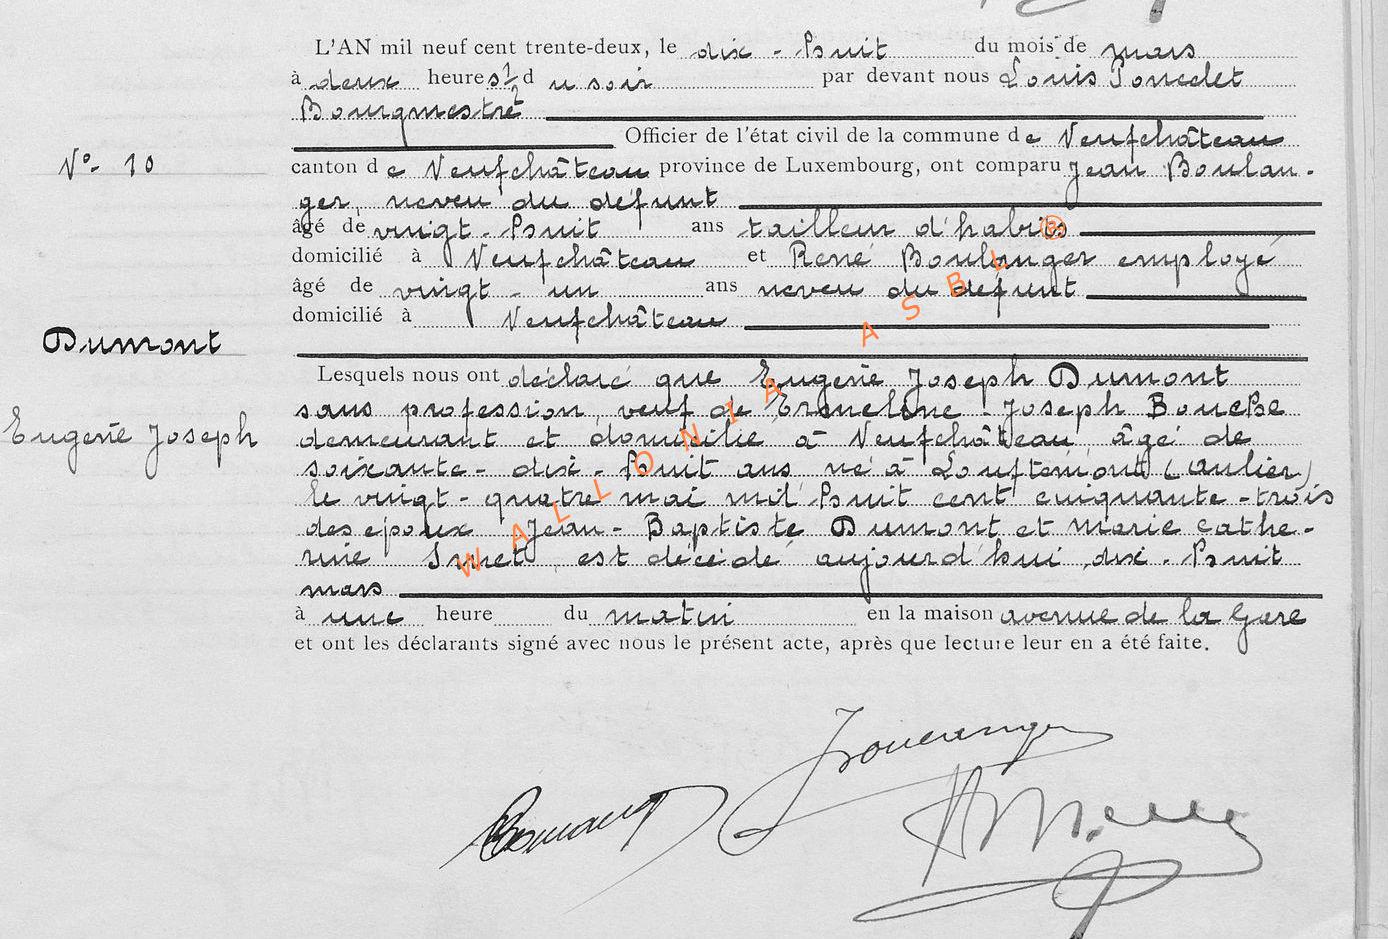 L'AN mil neuf cent trente-deux, le dix-huit du mois de mars
à deux heures 1/2 du soir par devant nous Louis Poncelet
Bourgmestre
Officier de l'état civil de la commune de Neufchâteau
N° 10
canton de Neufchâteau province de Luxembourg, ont comparu Jean Boulan-
ger, neveu du défunt
âgé de vingt-huit ans tailleur d'habits
domicilié à Neufchâteau et René Boulanger employé
âgé de vingt-un ans neveu du défunt
domicilié à Neufchâteau
Dumont
Lesquels nous ont déclaré que Eugène Joseph Dumont
sans profession, veuf de Joseph Bouché
Eugène Joseph
demeurant et domicilié à Neufchâteau âgé de
soixante-dix-huit ans né à Louftémont (Anlier)
le vingt-quatre mai mil huit cent cinquante-trois
des époux Jean-Baptiste Dumont et Marie Cathe-
rine est décédé aujourd'hui dix-huit
mars
à une heure du matin en la maison avenue de la Gare
et ont les déclarants signé avec nous le présent acte, après que lecture leur en a été faite.
WALLONIA ASBL ®